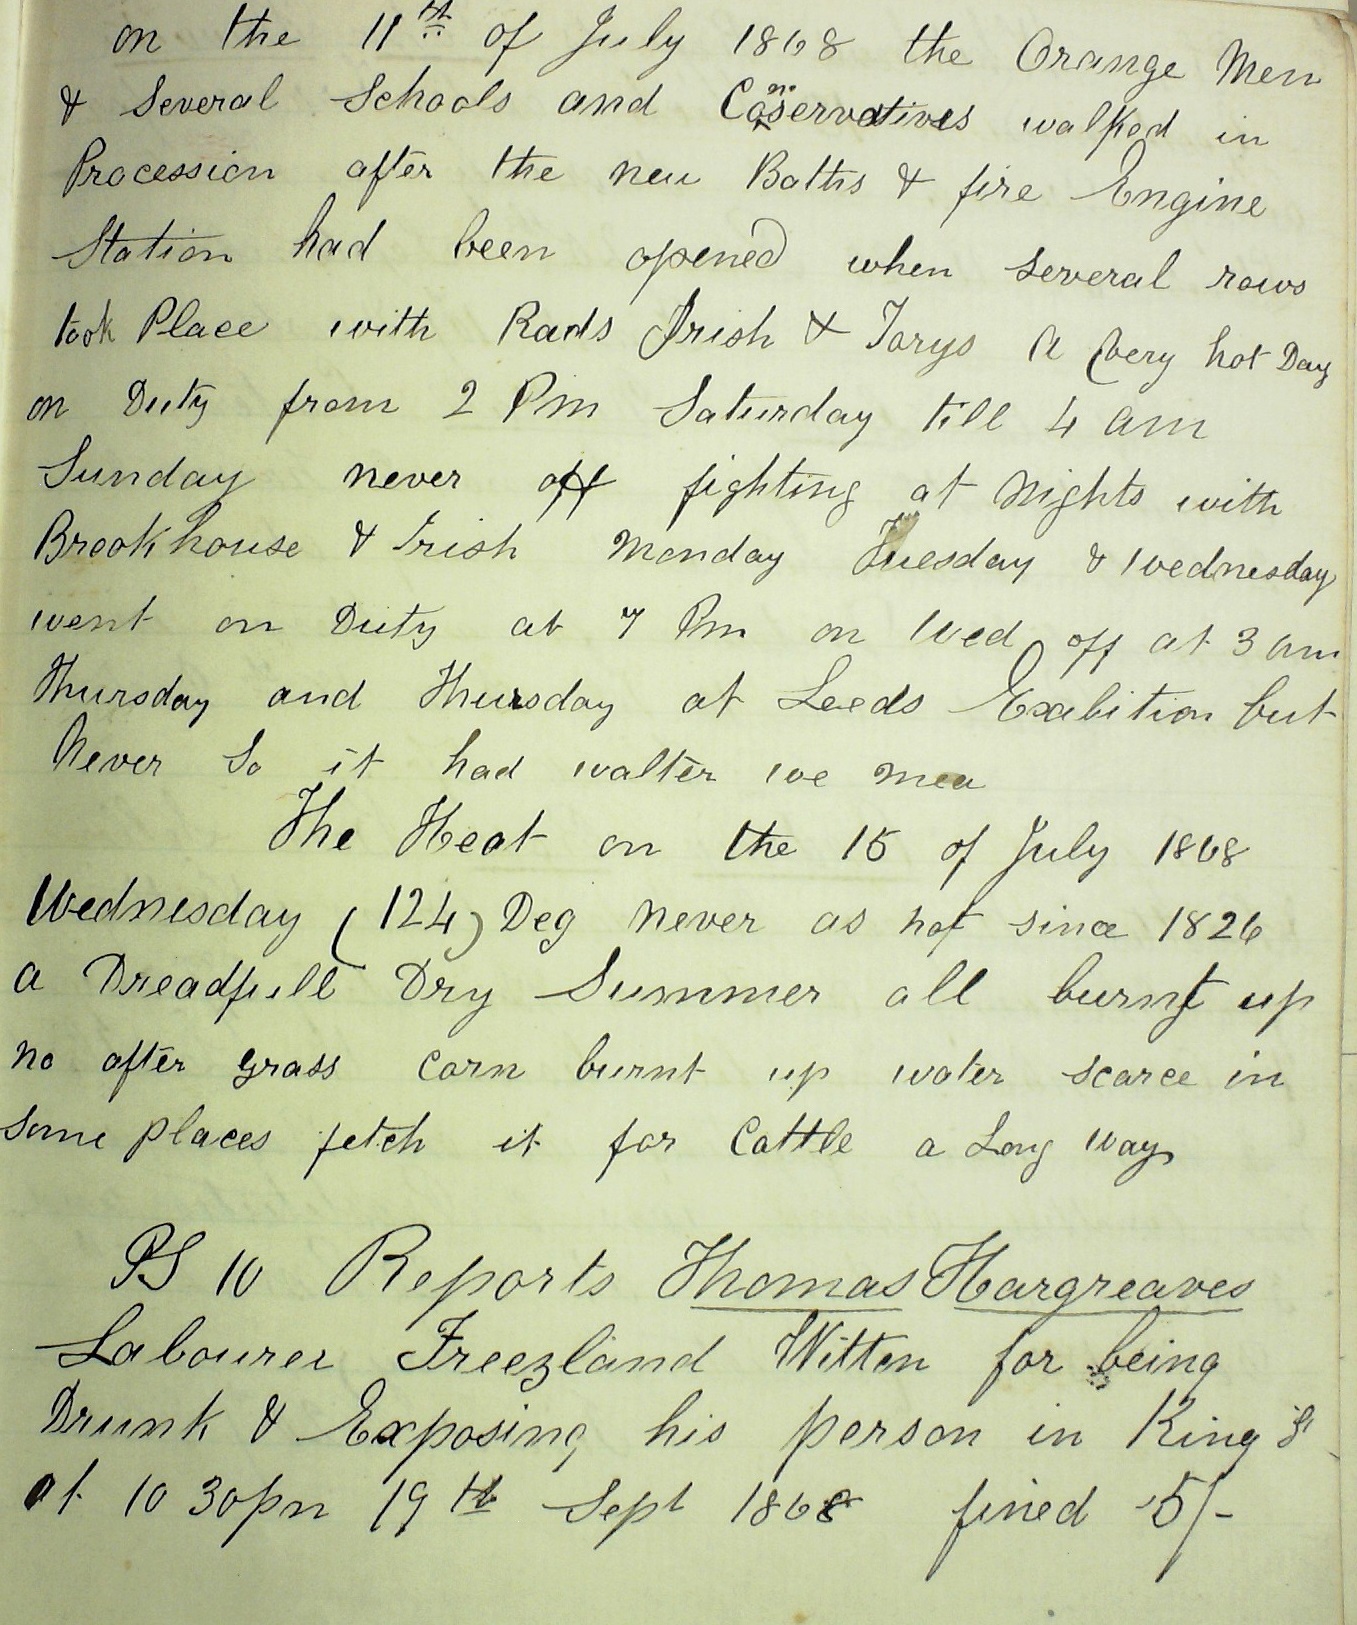 on the 11st of July 1868 the Orange Men
& Several Schools and Conservatives walked in
Procession after the new Baths & fire Engine
Station had been opened when several rows
took Place with Rads Irish & Torys A Very hot Day
on Duty from 2 Pm Saturday till 4 am
Sunday never off fighting at Nights with
Brookhouse & Irish Monday Tuesday & Wednesday
went on Duty at 7 Pm on Wed off at 3 am
Thursday and Thursday at Leeds Exabition but
Never So it had walter we
The Heat on the 15 of July 1868
Wednesday (124) Deg never as hot since 1826
a Dreadfull Dry Summer all burnt up
no after grass corn burnt up water scarce in
some places fetch it for Cattle a Long way
PS 10 Reports Thomas Hargreaves
Labourer Freezland Witton for being
Drunk & Exposing his person in King St
at 10 30pm 19th Sept 1868 fined 5/-